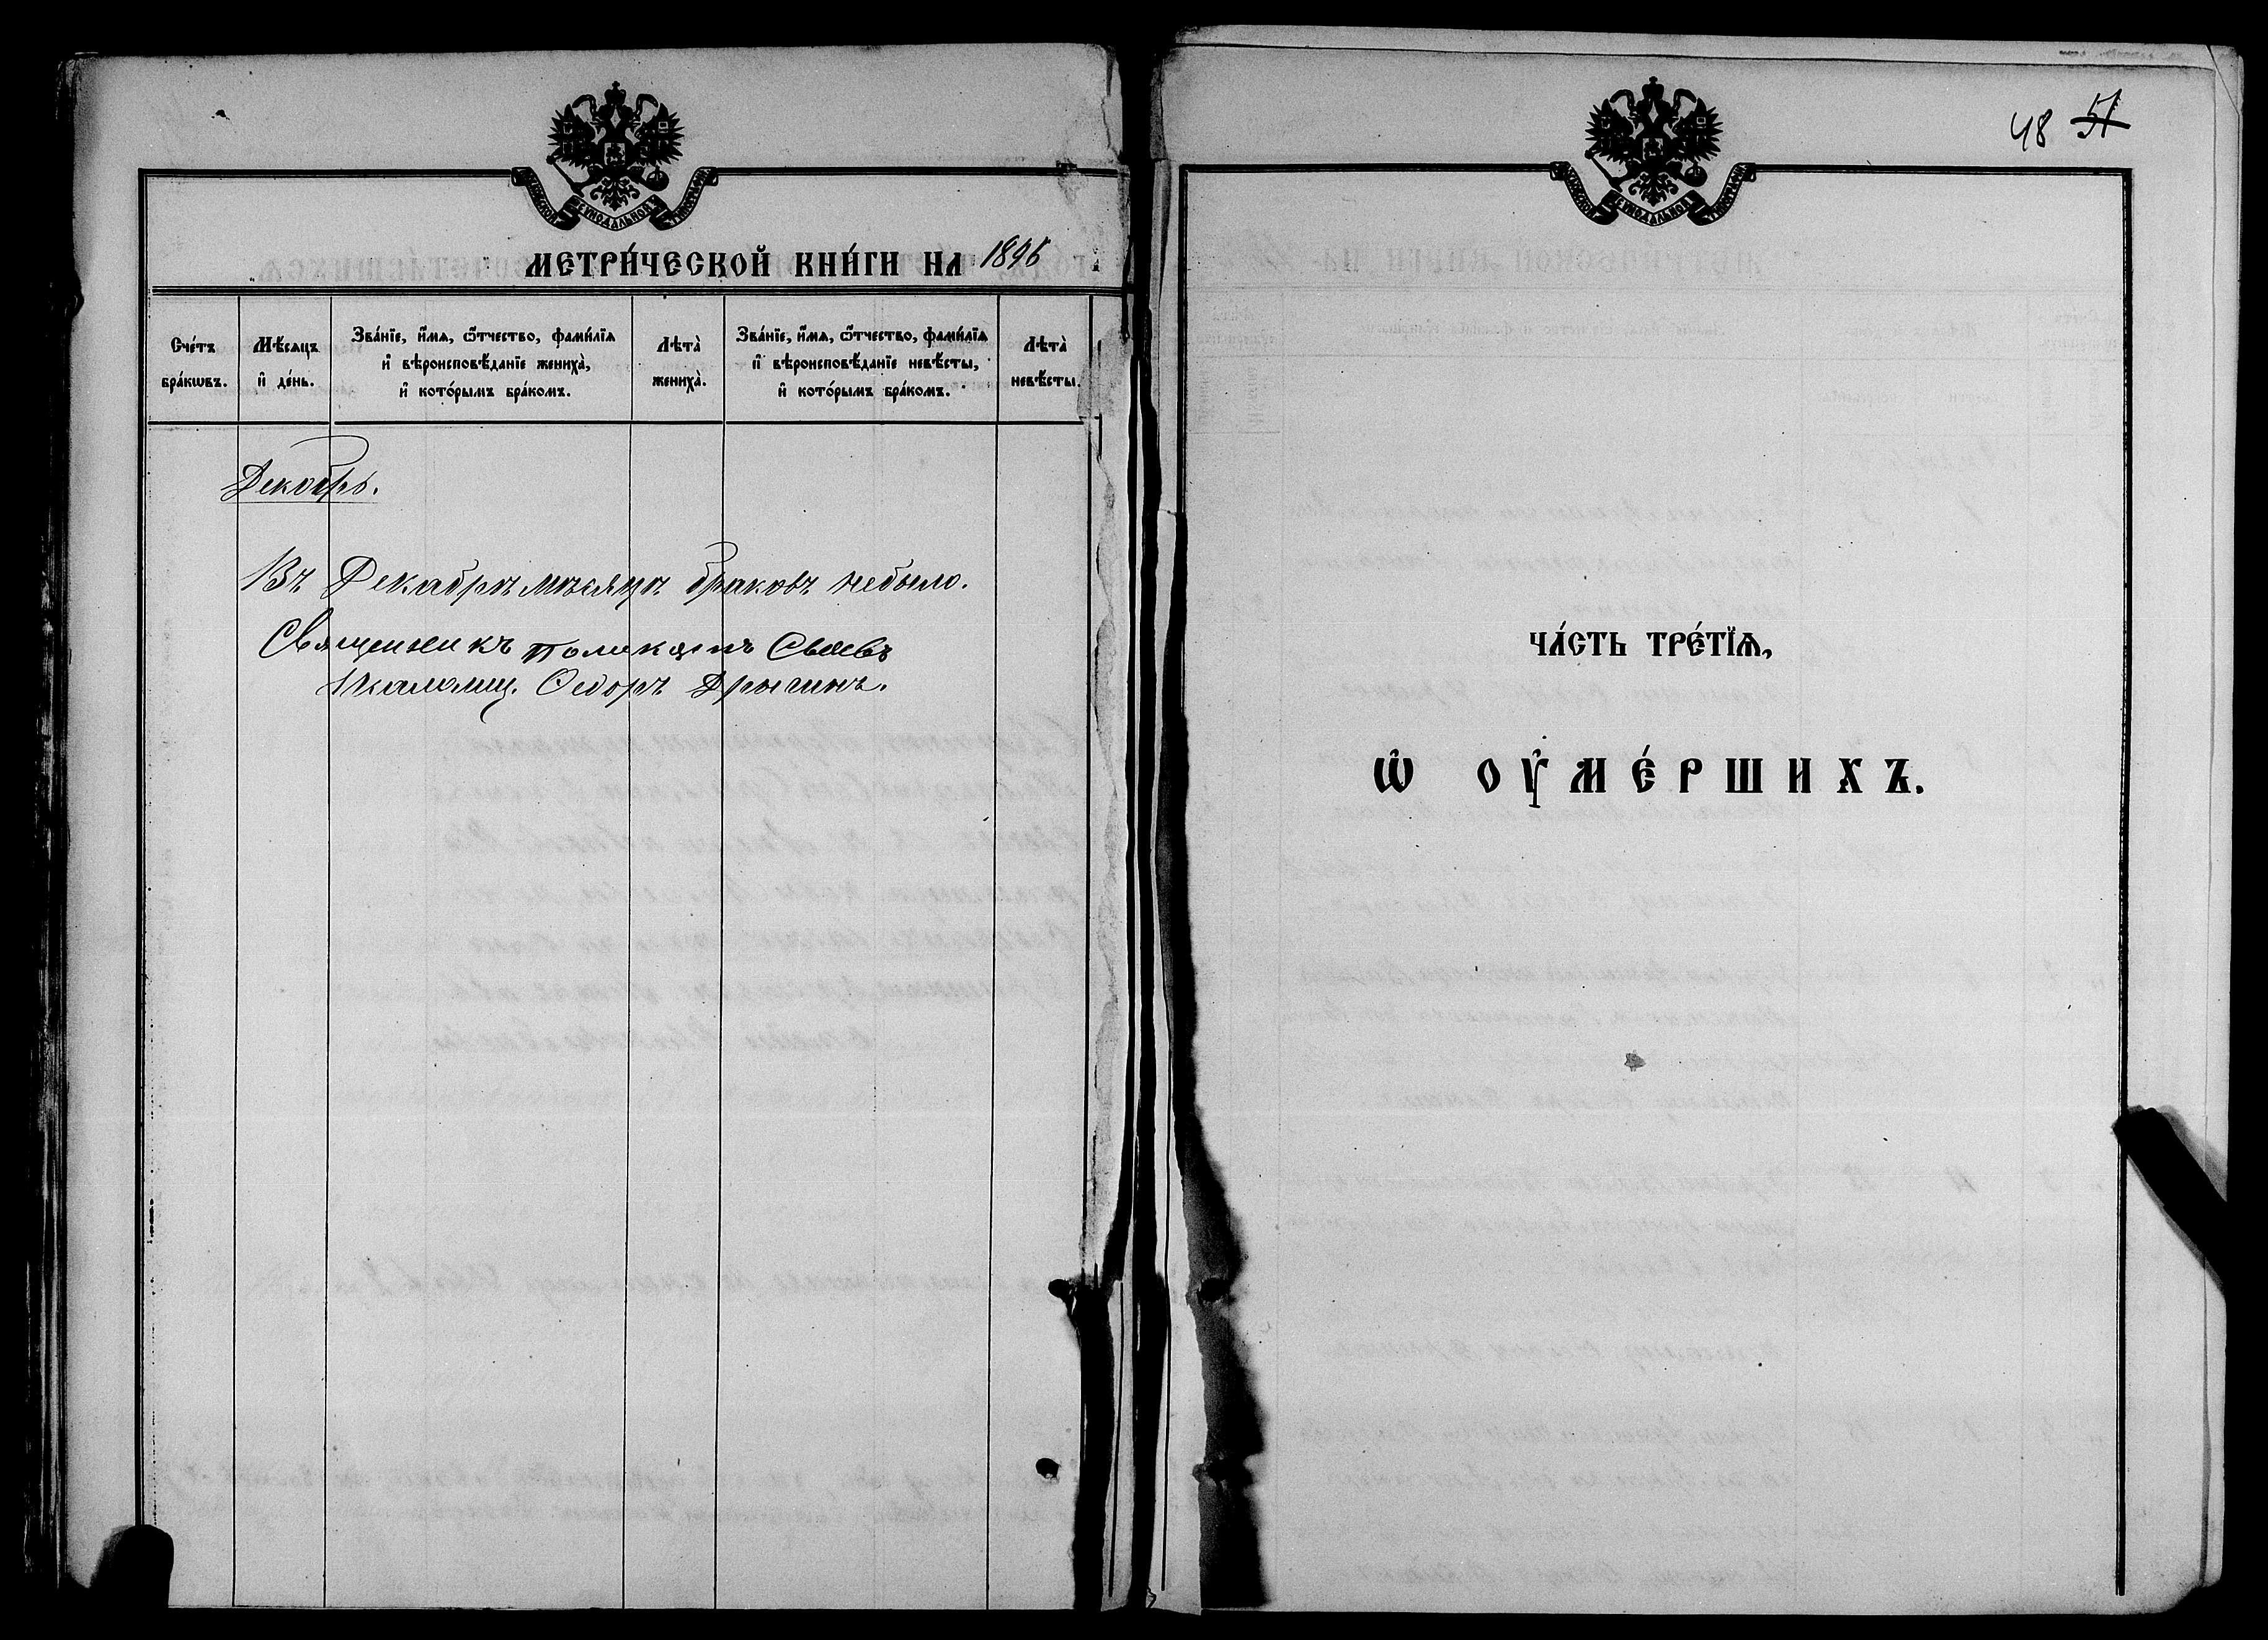 МЕТРИ́ЧЕСКОЙ КНИ́ГИ НА 1896
Сче́тъ бра́кѡвъ.
Мѣ́сяцъ и҆ де́нь.
Зва́нїе, и҆́мѧ, ѻ҆́тчество, фами́лїѧ
и҆ вѣроисповѣ́данїе жениха̀,
и҆ кото́рымъ бра́комъ.
Лѣта̀ жениха̀.
Зва́нїе, и҆́мѧ, ѻ҆́тчество, фами́лїѧ
и҆ вѣроисповѣ́данїе невѣ́сты,
и҆ кото́рымъ бра́комъ.
Лѣта̀ невѣ́сты.
Декабрь.
Въ Декабрѣ мѣсяцѣ браковъ небыло.
Священникъ Поликарпъ
Псаломщ. Ѳедоръ Дрыгинъ.
48 51
СѴНОДАЛЬНОЙ
ЧА́СТЬ ТРЕ́ТЇѦ,
Ѡ҆ ОУ҆МЕ́РШИХЪ.
СѴНОДАЛЬНОЙ